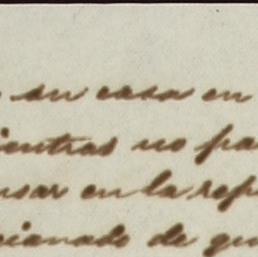 su casa en
mientras no pa
nsar en la rep
cionado de qu